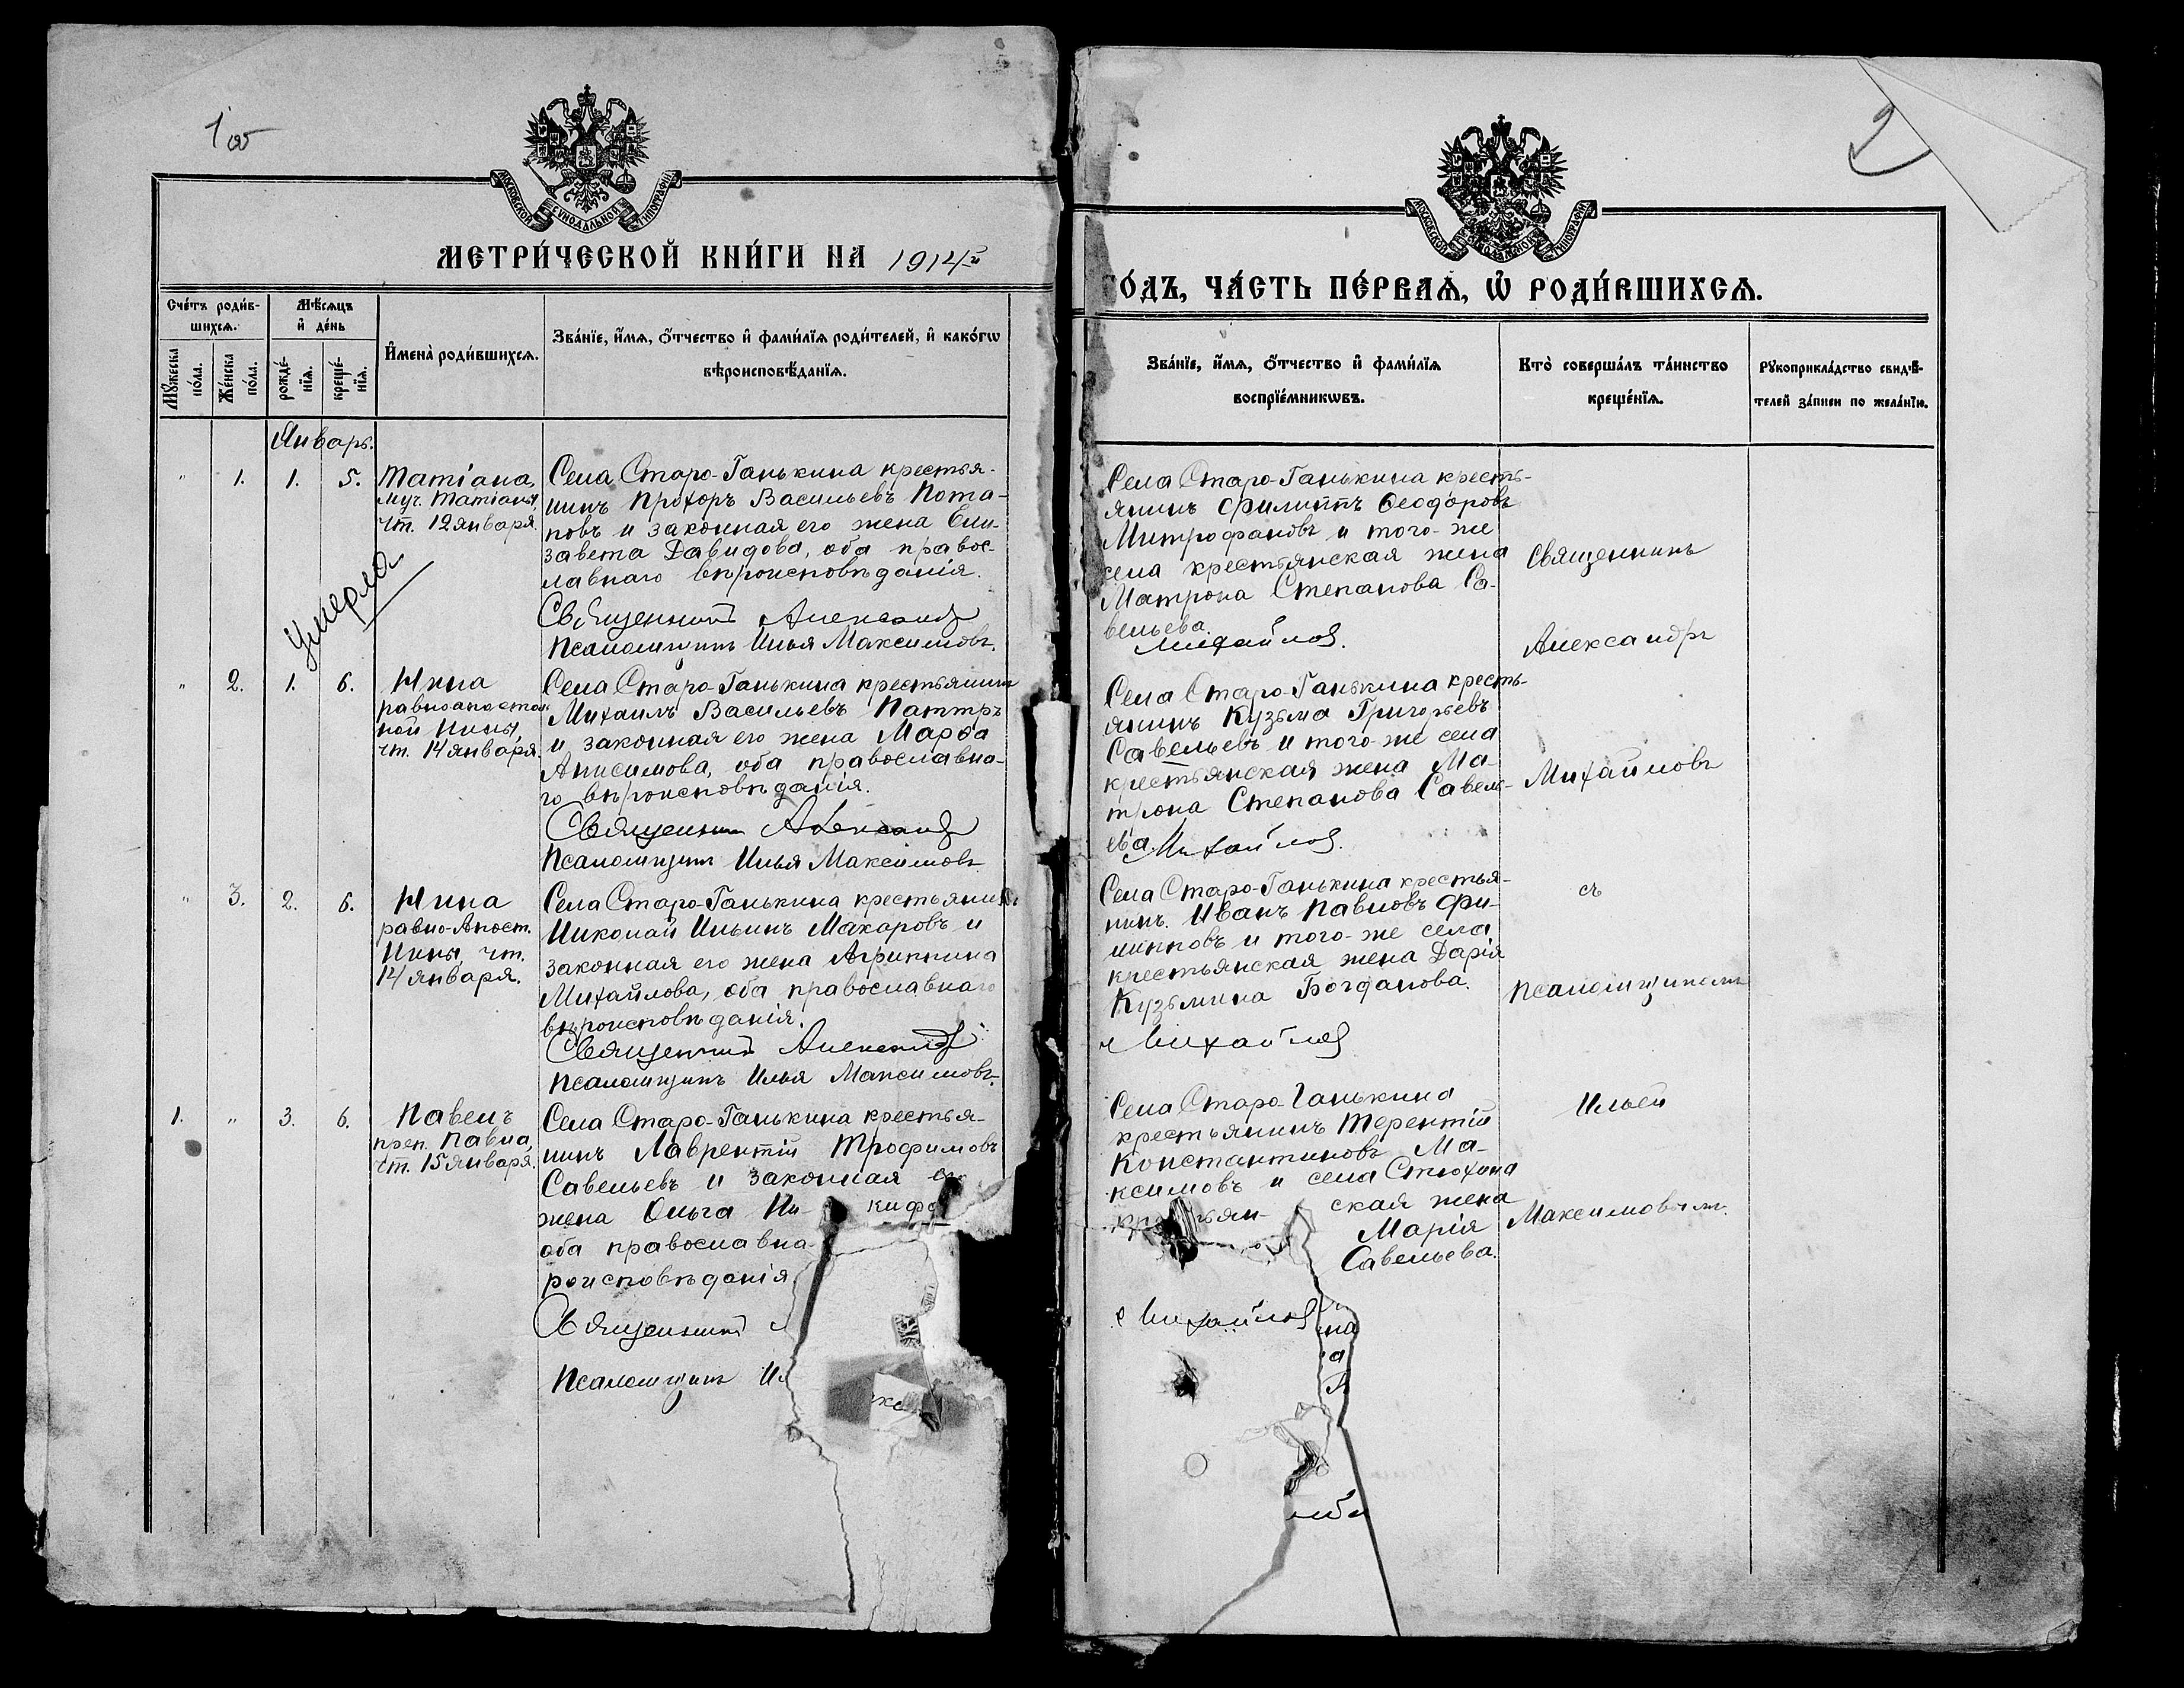 1 об
МОСКОВСКОЙ СѴНОДАЛЬНОЙ ТИПОГРАФІИ
МЕТРИ́ЧЕСКОЙ КНИ́ГИ НА 1914й
Сче́тъ роди́в-
шихсѧ.
Мѣ́сѧцъ
и҆ де́нь
Мꙋ́жеска
по́ла.
Же́нска
по́ла.
рожде́-
нїѧ.
креще́-
нїѧ.
И҆мена̀ роди́вшихсѧ.
Зва́нїе, и҆́мѧ, ѻ҆́тчество и҆ фами́лїѧ роди́телей, и҆ како́гѡ
вѣроисповѣ́данїѧ.
Январь.
" 1. 1. 5.
Татіана,
муч. Татіаны,
чт. 12 января.
Умерла
Села Старо-Ганькина крестья-
нинъ Прохоръ Васильевъ Пота-
повъ и законная его жена Ели-
завета Давидова, оба правос-
лавнаго вѣроисповѣданія.
Священникъ Александръ
Псаломщикъ Илья Максимовъ.
" 2. 1. 6.
Нина
равноапостоль
ной Нины,
чт. 14 января.
Села Старо-Ганькина крестьянинъ
Михаилъ Васильевъ
и законная его жена Марѳа
Анисимова, оба православна-
го вѣроисповѣданія.
Священникъ Александръ
Псаломщикъ Илья Максимовъ
" 3. 2. 6.
Нина
равно-Апост.
Нины, чт.
14 января.
Села Старо-Ганькина крестьянинъ
Николай Ильинъ Макаровъ и
законная его жена Агриппина
Михайлова, оба православнаго
вѣроисповѣданія.
Священникъ Александръ
Псаломщикъ Илья Максимовъ.
1. " 3. 6.
Павелъ
преп. Павла,
чт. 15 января.
Села Старо-Ганькина крестья-
нинъ Лаврентій Трофимовъ
Савельевъ и законная его
жена Ольга Ни- кифо
оба православна
роисповѣданія
Священникъ
Псаломщикъ Ил
2
МОСКОВСКОЙ СѴНОДАЛЬНОЙ ТИПОГРАФІИ
ГО́ДЪ, ЧА́СТЬ ПЕ́РВАѦ, Ѡ҆ РОДИ́ВШИХСѦ.
Зва́нїе, и҆́мѧ, ѻ҆́тчество и҆ фами́лїѧ
воспрїе́мникѡвъ.
Кто̀ соверша́лъ та́инство
креще́нїѧ.
Рꙋкоприкла́дство свидѣ́-
телей за́писи по жела́нїю.
Села Старо-Ганькина кресть-
янинъ Филиппъ Ѳеодоровъ
Митрофановъ и того-же
села крестьянская жена
Матрона Степанова Са-
вельева.
Михайлов.
Села Старо-Ганькина кресть-
янинъ Кузьма Григорьевъ
Савельевъ и того-же села
крестьянская жена Ма-
трона Степанова Савель-
ева
Михайлов.
Села Старо-Ганькина крестья-
нинъ Иванъ Павловъ Фи-
липповъ и того-же села
крестьянская жена Дарія
Кузьмина Богданова.
Михайлов
Села Старо-Ганькина
крестьянинъ Терентій
Константиновъ Ма-
ксимовъ и села Стюхина
крестьян- ская жена
Марія
Савельева.
Михайлов
Священникъ
Александръ
Михайловъ
съ
Псаломщикомъ
Ильей
Максимовымъ.